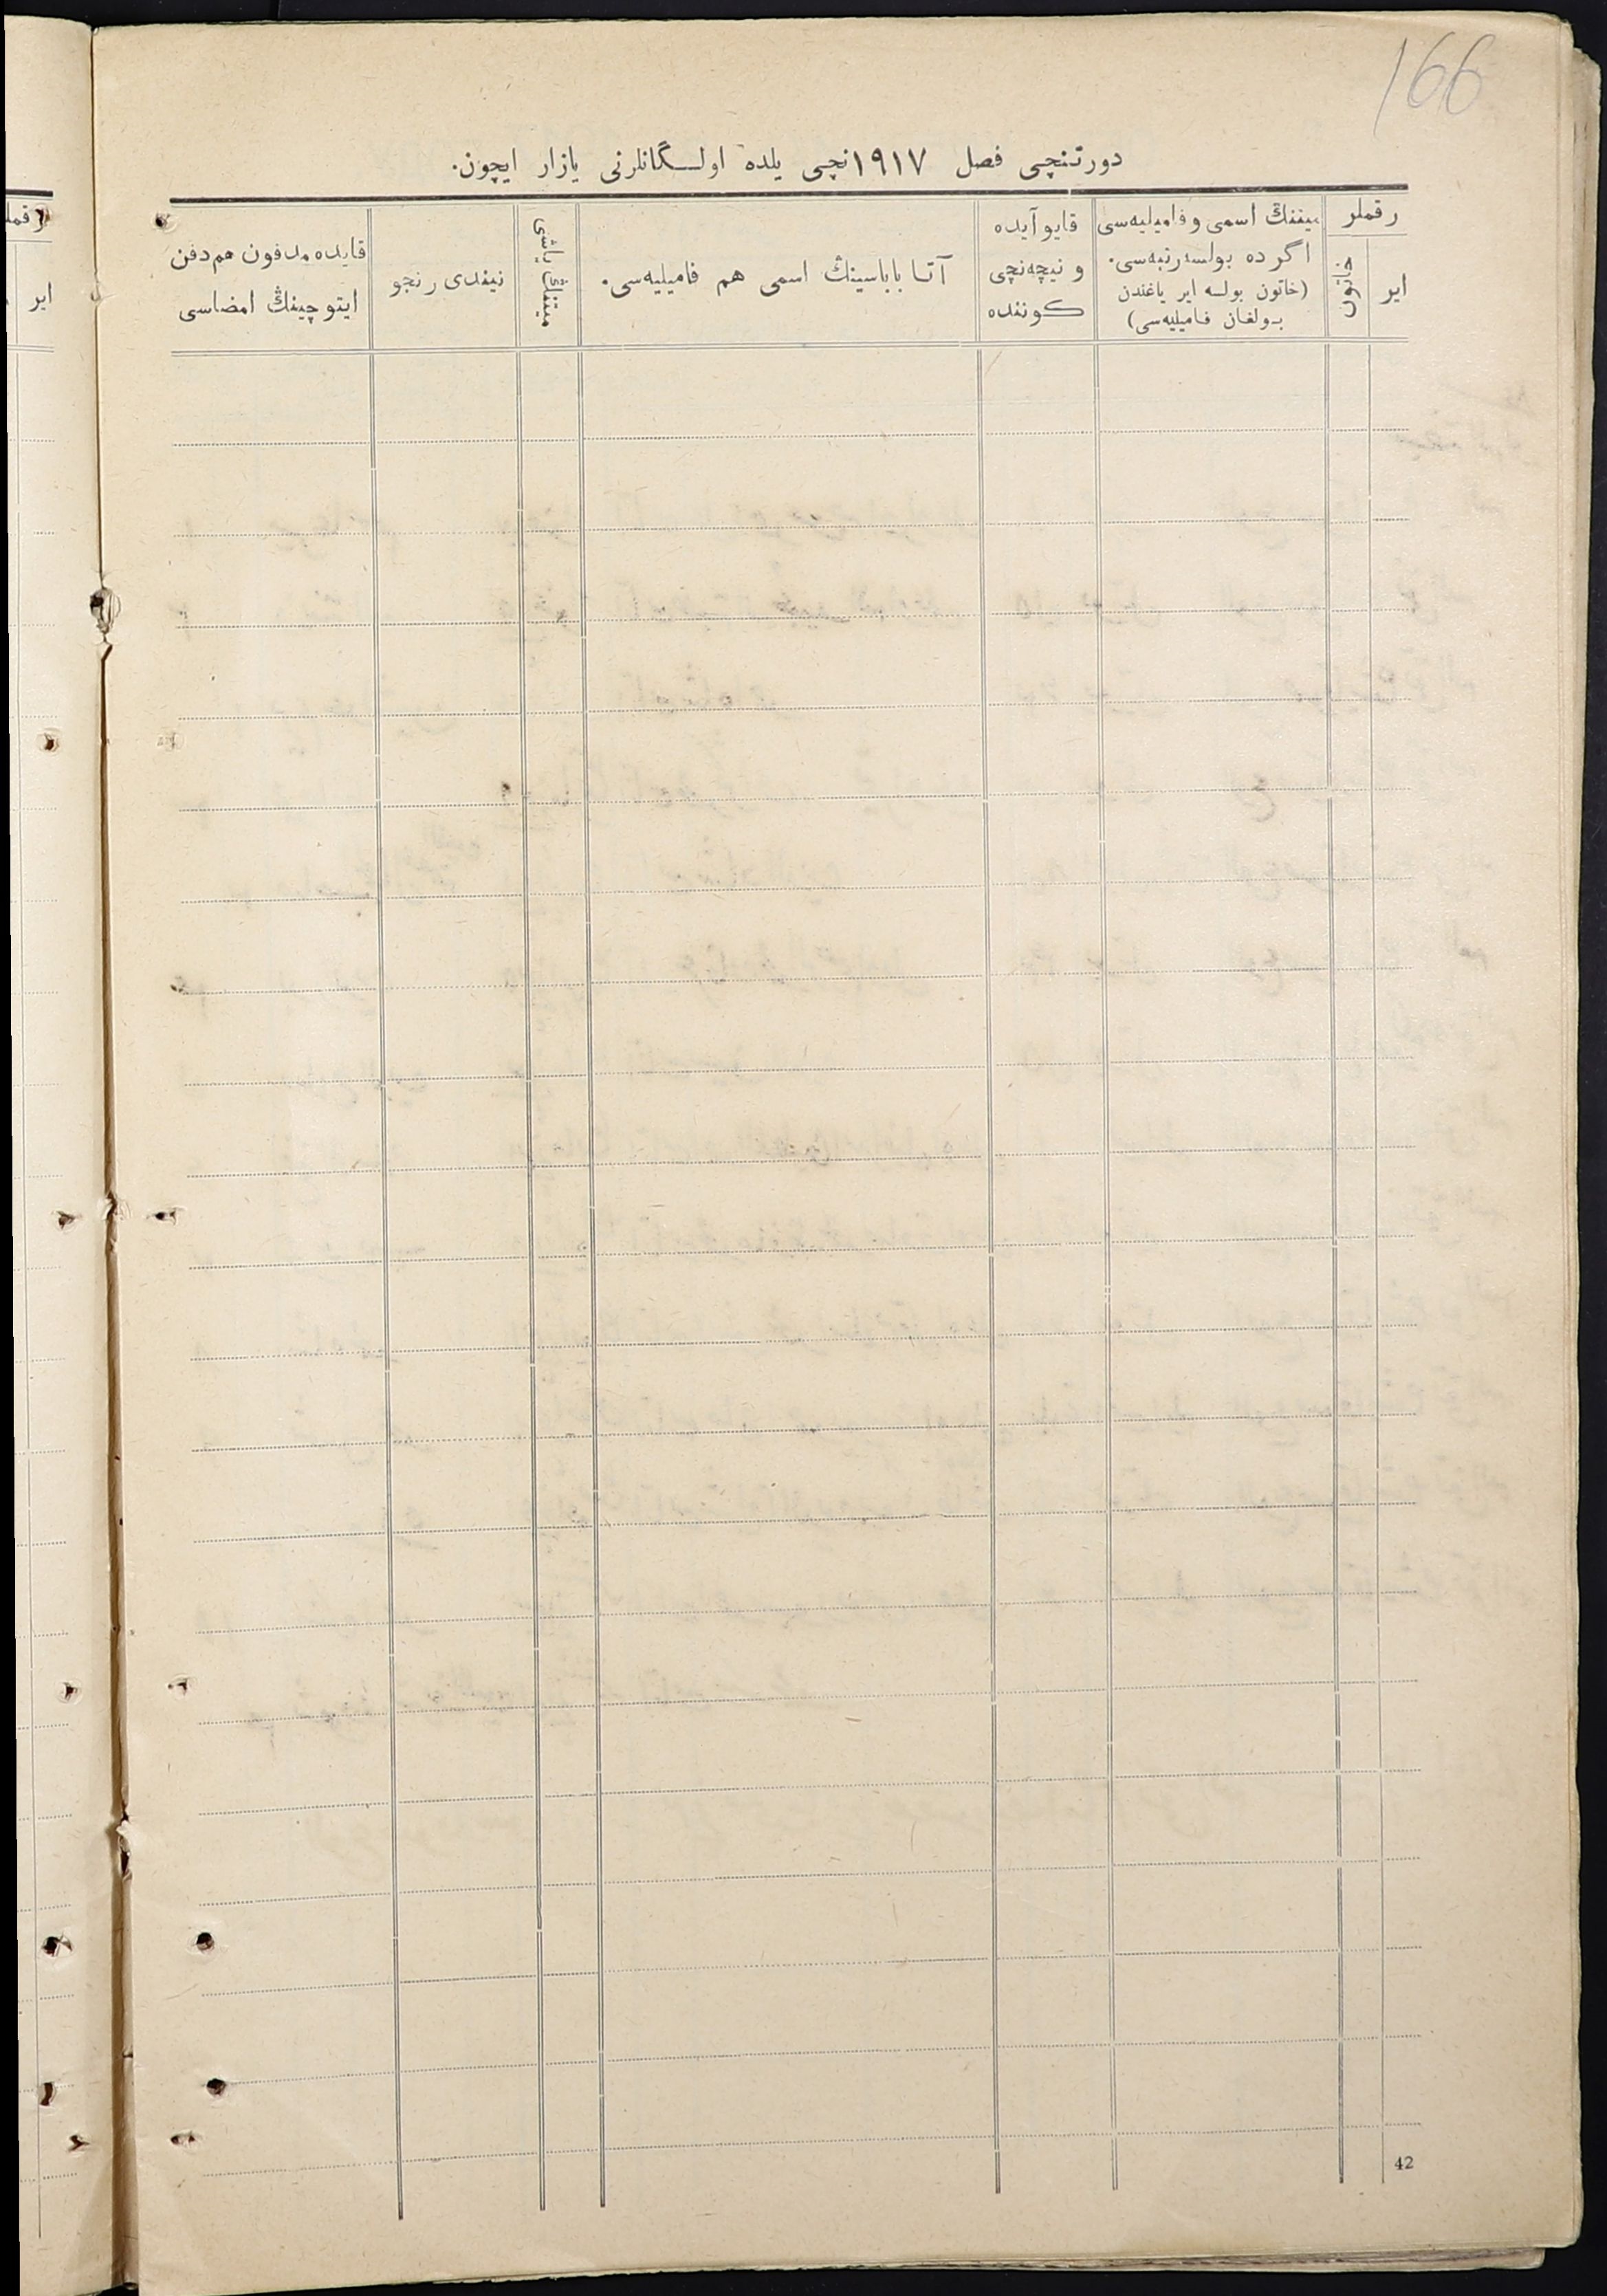 166
دورتنچی فصل ۱۹۱۷نچی یلده اولـگانلرنی یازار ایچون.
رقملر
ایر
خاتون
میتنڭ اسمی و فامیلیه‌سی
اگر ده بولسه رتبه‌سی.
(خاتون بولسه ایر یاغندن
بولغان فامیلیه‌سی)
قایو آیده
و نیچه‌نچی
کوننده
آتا باباسینڭ اسمی هم فامیلیه‌سی.
میتنڭ یاشی
نیندی رنجو
قایده مدفون هم دفن
ایتوچینڭ امضاسی
رقملر
ایر
42